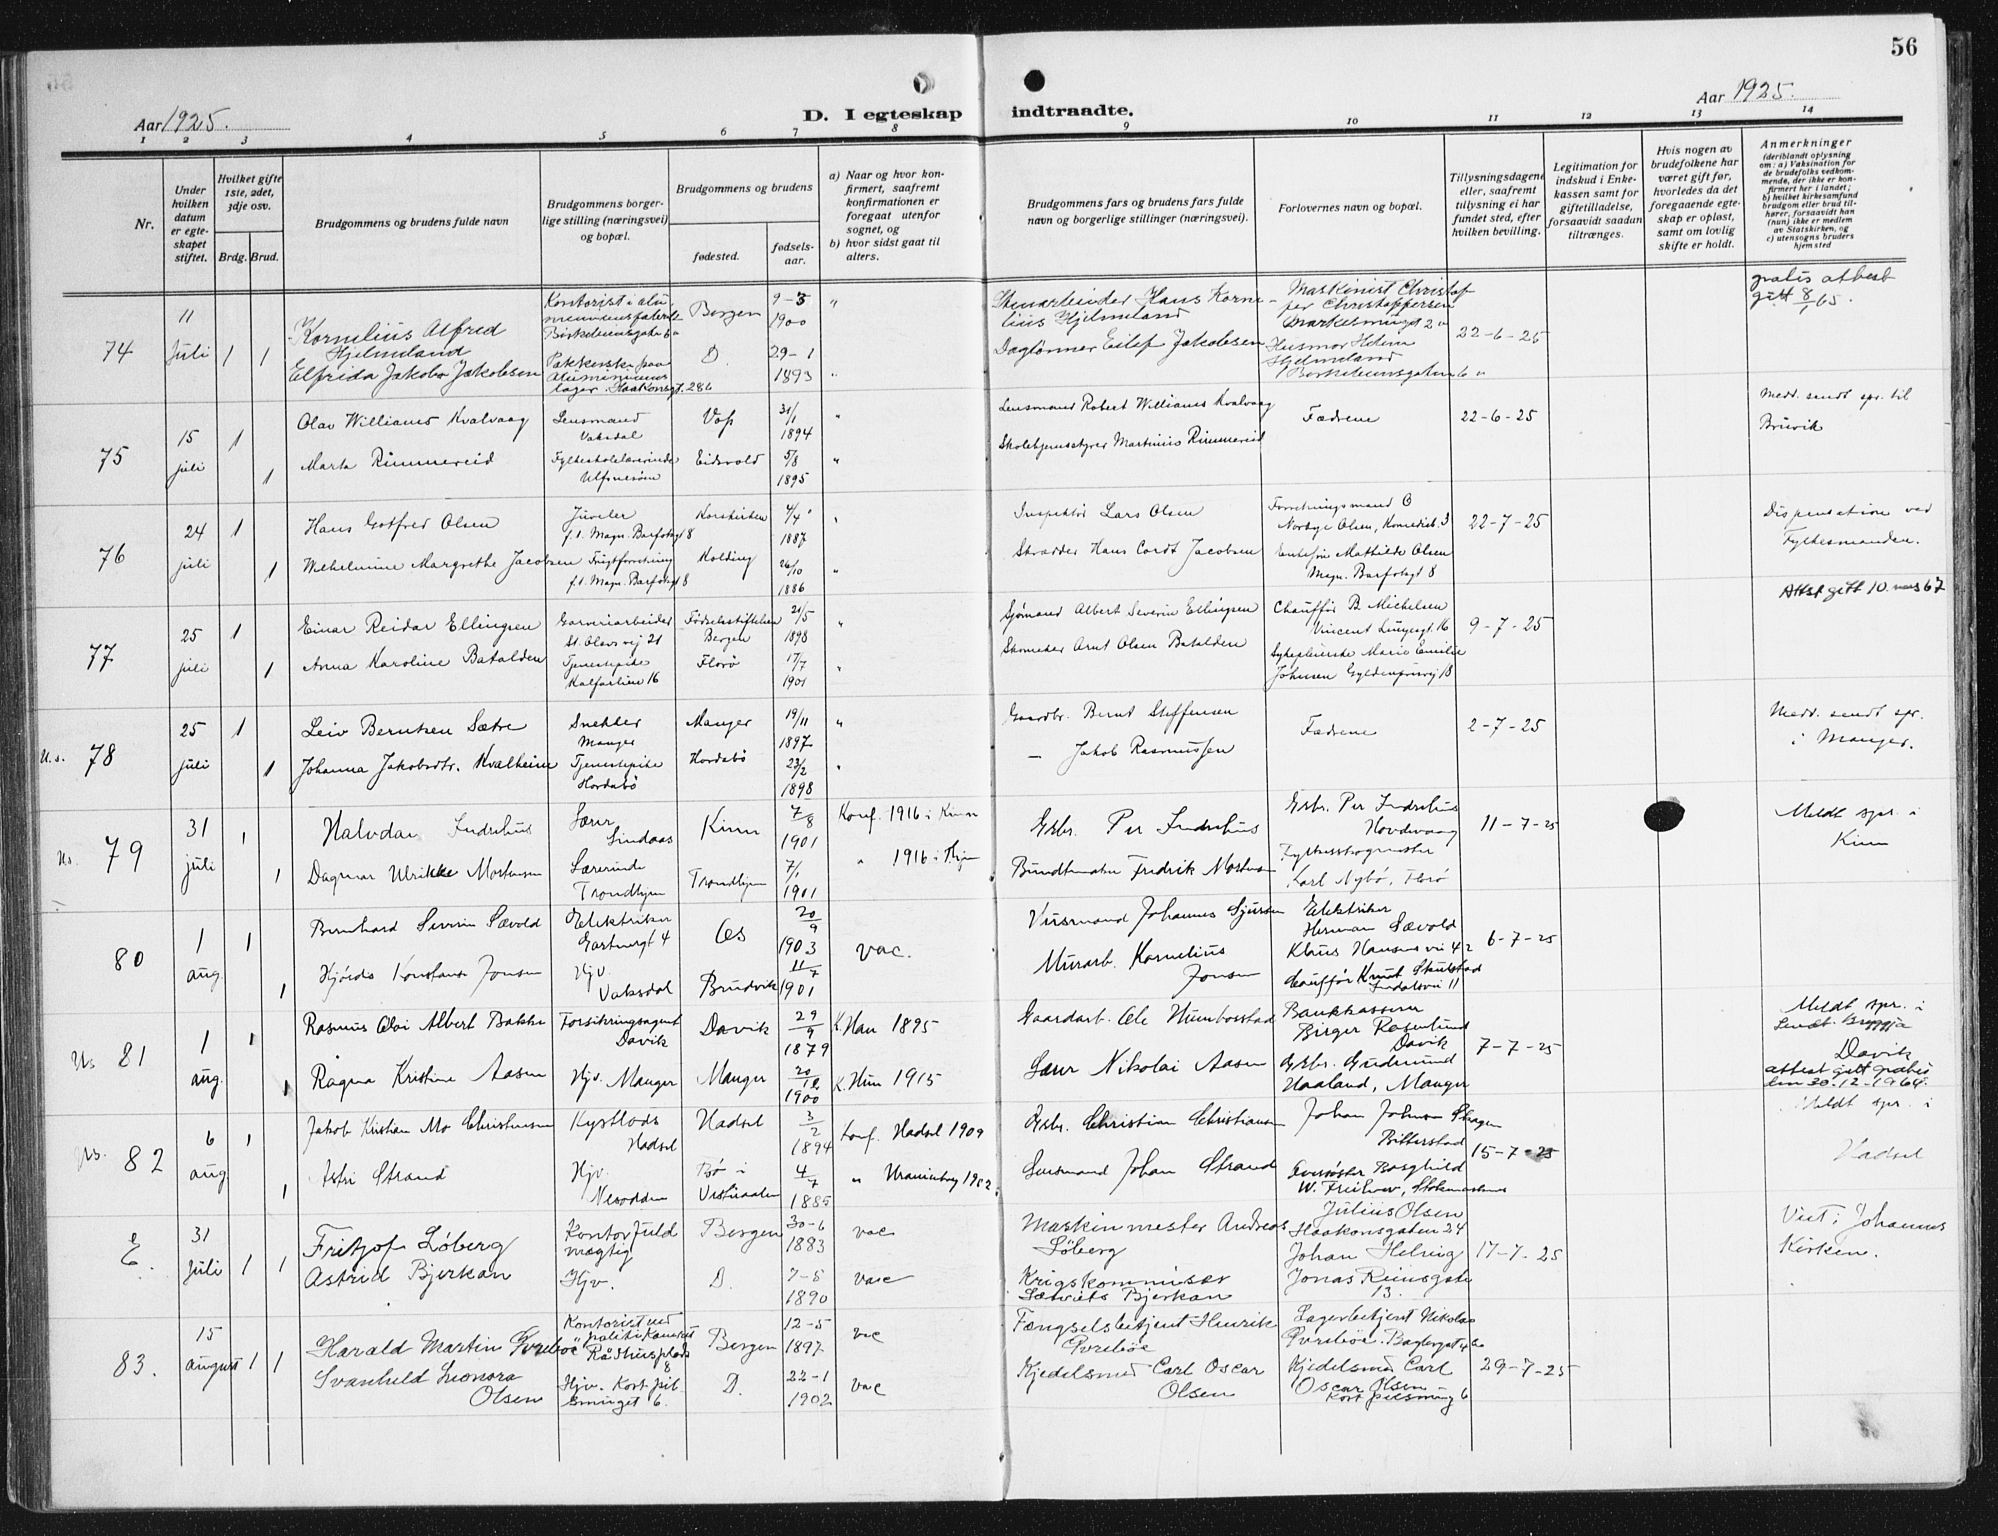 56
Aar 1925.
D. I egteskap indtraadte.
Aar 1925.
1 2 3 4 5 6 7 8 9 10 11 12 13 14
Nr.
Under hvilken datum er egteskapet stiftet.
Hvilket gifte 1ste, 2det, 3dje osv.
Brdg. Brud.
Brudgommens og brudens fulde navn
Brudgommens borgerlige stilling (næringsvei) og bopæl.
Brudgommens og brudens
fødested.
fødselsaar.
a) Naar og hvor konfirmert, saafremt konfirmationen er foregaat utenfor sognet, og
b) hvor sidst gaat til alters.
Brudgommens fars og brudens fars fulde navn og borgerlige stillinger (næringsvei).
Forlovernes navn og bopæl.
Tillysningsdagene eller, saafremt tillysning ei har fundet sted, efter hvilken bevilling.
Legitimation for indskud i Enkekassen samt for giftetilladelse, forsaavidt saadan tiltrænges.
Hvis nogen av brudefolkene har været gift før, hvorledes da det foregaaende egteskap er opløst, samt om lovlig skifte er holdt.
Anmerkninger
(deriblandt oplysning om: a) Vaksination for de brudefolks vedkommende, der ikke er konfirmert her i landet; b) hvilket kirkesamfund brudgom eller brud tilhører, forsaavidt han (hun) ikke er medlem av Statskirken, og c) utensogns bruders hjemsted
74 11 Juli 1 1
Kornelius Alfred Hjelmeland
Kontorist i
Bergen 9-3 1900 "
Hans Kornelius Hjelmeland
Maskinist Christoffer Christoffersen
22-6-25
gratis attest gitt 8/ 65.
Elfrida Jakoba Jakobsen
D. 29-1 1893 "
Daglønner Eilef Jakobsen
Hjelmeland
75 15 juli 1 1
Olav Williams Kvalvaag
Lensmand Vaksdal
Voss 31/1 1894 "
Lensmand Robert Williams Kvalvaag
Fædrene
22-6-25
Medd. sendt spr. til Bruvik
Marta Rimmereid
Eidsvold 5/8 1895 "
Martinius Rimmereid
76 24 juli 1 1
Hans Gotfred Olsen
Juveler f.t. Magn. Barfotsgt 8
Korskirken 4/4 1887 "
Inspektør Lars Olsen
Forretningsmand O Norbye Olsen, Komedieb. 3
22-7-25
Dispensation ved Fylkesmanden.
Wilhelmine Margrethe Jacobsen
Frugtforretning f.t. Magn. Barfotsgt 8
Kolding 26/10 1886 "
Skrædder Hans Cordt Jacobsen
Mathilde Olsen Magn. Barfotsgt 8
77 25 juli 1 1
Einar Reidar Ellingsen
Garveriarbeider St. Olavs vij 21
Fødselsstiftelsen Bergen 21/5 1898 "
Sjømand Albert Severin Ellingsen
Chauffør B. Michelsen Vincent Lungesgt. 16
9-7-25
Attst gitt 10 mars 67
Anna Karoline Batalden
Tjenestepike Kalfarlien 16
Florø 17/7 1901 "
Skomaker Arnt Olsen Batalden
Sykepleierske Marie Emilie Johnsen Gyldenprisvij 18
U.s. 78 25 juli 1 1
Leiv Berntsen Sætre
Snekker Manger
Manger 19/11 1897 "
Gaardbr. Bernt Steffensen
Fædrene
2-7-25
Medd. sendt spr. i Manger.
Johanna Jakobsdtr. Kvalheim
Tjenestepike Hordabø
Hordabø 23/2 1898 "
— Jakob Rasmussen
Us. 79 31 juli 1 1
Halvdan Indrehus
Lærer Lindaas
Kinn 7/8 1901
Konf. 1916 i Kinn
Gsbr. Per Indrehus
Gsbr. Per Indrehus Hovdevaag
11-7-25
Meldt spr. i Kinn
Dagmar Ulrikke Mortensen
Lærerinde Trondhjem
Trondhjem 7/1 1901
" 1916 i Thjm
Bundtmaker Fredrik Mortensen
Karl Nybø, Florø
80 1 aug. 1 1
Bernhard Severin Sævold
Elektriker Gartnergt 4
Os 20/9 1903
vac.
Johannes Sjursen
Elektriker Herman Sævold Klaus Hansens vei 42
6-7-25
Hjørdis Konstanse Jonsen
Hjv. Vaksdal
Bruvik 11/7 1901
Murarb. Kornelius Jonsen
Chauffør Knut Skulstad Indalsvei 11
Us 81 1 aug. 1 1
Rasmus Olai Albert Bakke
Forsikringsagent Davik
Davik 29/9 1879
K. Han 1895
Gaardarb. Ole Humborstad
Bankkasserer Birger Rosenlund Davik
7-7-25
Meldt spr. i
Davik
attest gitt gratis den 30-12-1964.
Ragna Kristine Aasen
Hjv. Manger
Manger 20/12 1900
K. Hun 1915
Lærer Nikolai Aasen
Gsbr. Gudmund Haaland, Manger
Us. 82 6 aug 1 1
Jakob Kristian Mo Christensen
Kystlods Hadsel
Hadsel 3/2 1894
Konf. Hadsel 1909
Gsbr. Christian Christiansen
Johan Johnsen Skagen Bitterstad
15-7-25
Meldt spr. i Hadsel
Astri Strand
Hjv. Nesodden
Bø i Vesteraalen 4/7 1885
" Uranienborg 1902
Lensmand Johan Strand
Borghild W. Freihow, Stokmarknes
E. 31 juli 1 1
Fritjof Løberg
Kontorfuldmægtig
Bergen 30-6 1883
vac
Maskinmester Andreas Løberg
Julius Olsen Haakonsgaten 24
17-7-25
Viet i Johannes Kirken.
Astrid Bjerkan
Hjv.
D. 7-5 1890
vac
Krigskommisær Bjerkan
Johan Helvig Jonas Reinsgate 13.
83. 15 august 1 1
Harald Martin Pvrebøe
Kontorist ved politikamret Rådhusplads 8
Bergen 12-5 1897
vac
Fængselsbetjent Henrik Pvrebøe
Lagerbetjent Nikolai Pvrebøe
29-7-25
Svanhild Leonora Olsen
Hjv. Kort pilsmuget 6.
D. 22-1 1902
vac
Kjedelsmed Carl Oscar Olsen
Kjedelsmed Carl Oscar Olsen Kort pilsmug 6